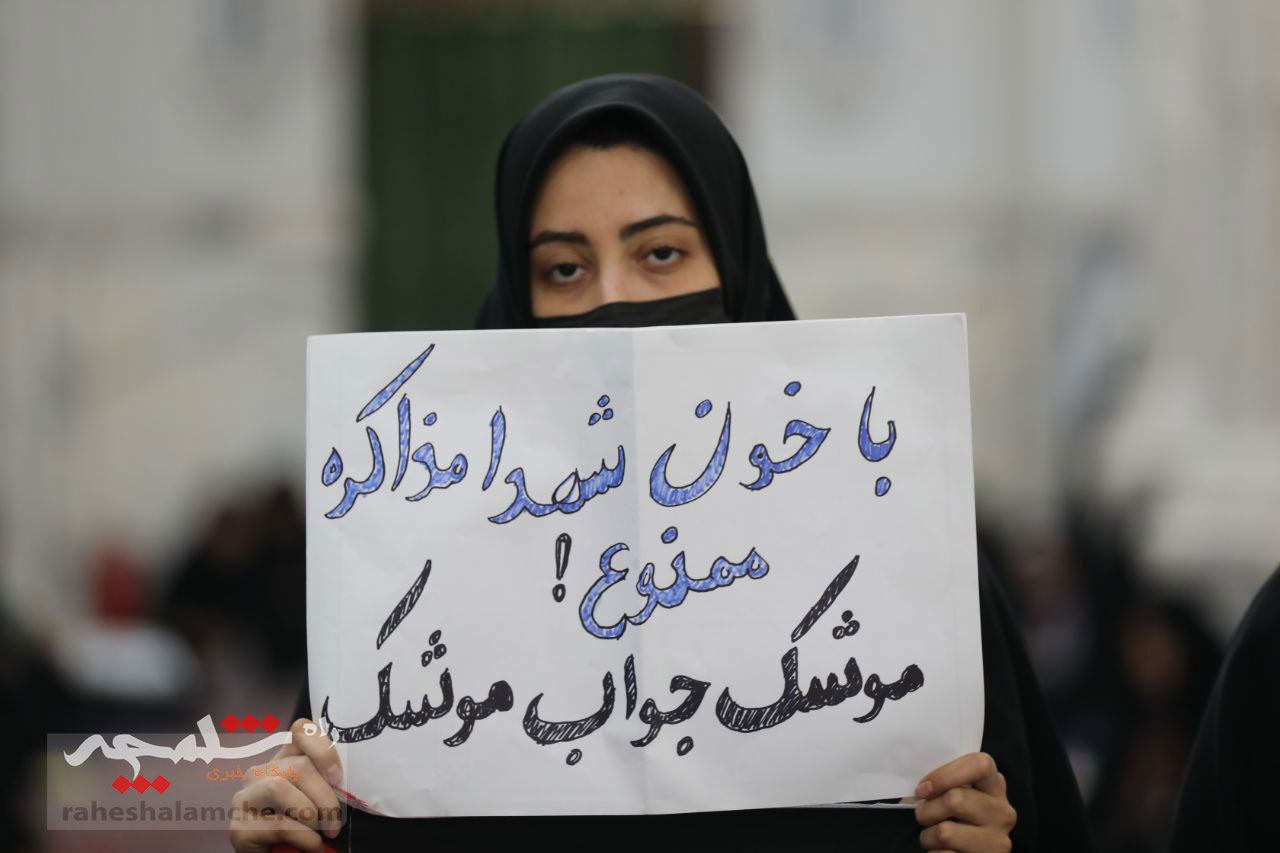 با خون شهدا مذاکره
ممنوع!
موشک جواب موشک
راه شلمچه
پایگاه خبری
raheshalamche.com